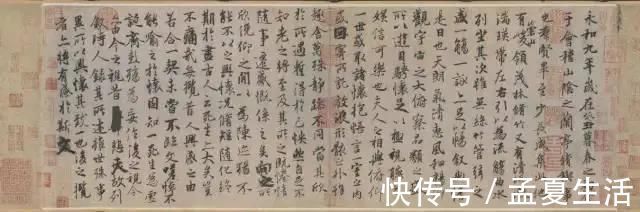 永和九年歲在癸丑暮春之初會
于會稽山陰之蘭亭脩稧事
也羣賢畢至少長咸集此地
有崇山峻領茂林脩竹又有清流激
湍暎帶左右引以為流觴曲水
列坐其次雖無絲竹管弦之
盛一觴一詠亦足以暢敘幽情
是日也天朗氣清惠風和暢仰
觀宇宙之大俯察品類之盛
所以遊目騁懷足以極視聽之
娛信可樂也夫人之相與俯仰
一世或取諸懷抱悟言一室之內
或因寄所託放浪形骸之外雖
趣舍萬殊靜躁不同當其欣
於所遇暫得於己快然自足不
知老之將至及其所之既惓情
隨事遷感慨係之矣向之所
欣俛仰之間以為陳迹猶不
能不以之興懷況脩短隨化終
期於盡古人云死生亦大矣豈
不痛哉每攬昔人興感之由
若合一契未嘗不臨文嗟悼不
能喻之於懷固知一死生為虛
誕齊彭殤為妄作後之視今
亦由今之視昔悲夫故列
敘時人錄其所述雖世殊事
異所以興懷其致一也後之攬
者亦將有感於斯文
快传号/孟夏生活